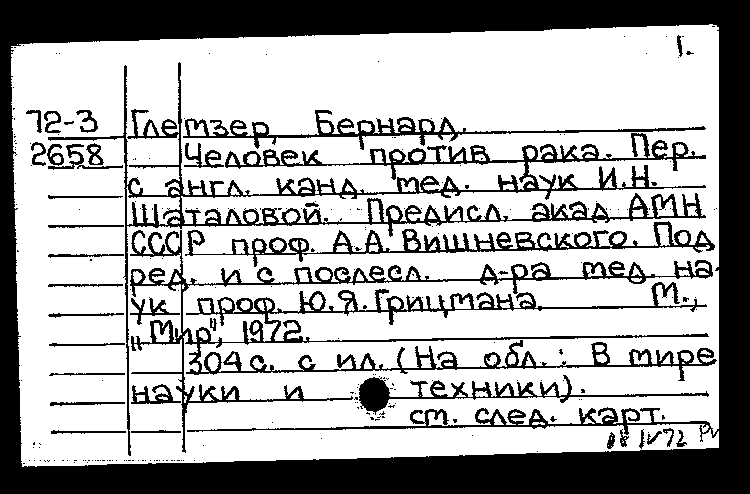 1.
72-3 Глемзер, Бернард.
2658 Человек против рака. Пер.
с англ. канд. мед. наук И.Н.
Шаталовой. Предисл. акад АМН
СССР проф. А.А. Вишневского. Под
ред. и с послесл. д-ра мед. на-
ук проф. Ю.Я. Грицмана. М.,
„Мир", 1972.
304 с. с ил. (На обл.: В мире
науки и техники).
см. след. карт.
IV 72